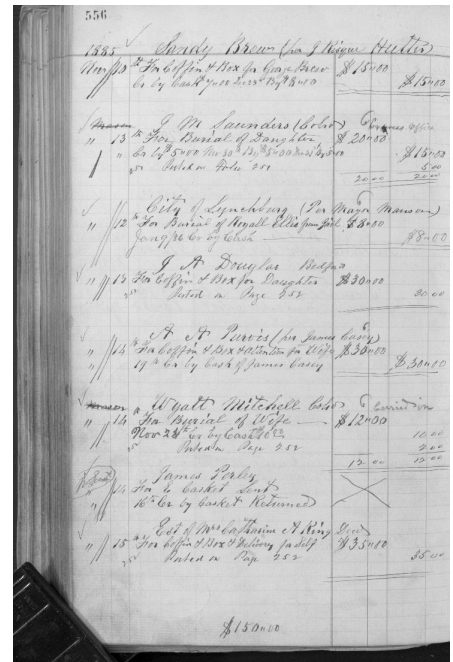 556
1885 Sandy Brews (per J Risque Hutter)
Nov 10 th For Coffin & Box for George Brew $15.00
Cr by Cash $15.00
J M Saunders (Cold)
" 13 th For Burial of Daughter $20.00
" Cr by 5.00 Nov 30th $15.00
Posted on Folio 250 5.00
20 00 20.00
City of Lynchburg (Per Mayor Manson)
" 12 th For Burial of Royall Ellis from Jail $8.00
Jany /86 Cr by Cash $8.00
J A Douglas Bedford
" 13 For Coffin & Box for Daughter $30.00
Posted on Page 252 30.00
A A Purvis (per James Casey)
" 14 th For Coffin & Box & attention for Wife $30.00
19th Cr by Cash of James Casey $30.00
Wyatt Mitchell Cold
" 14 th For Burial of Wife $12.00
Nov 28th Cr by Cash 10.00
Posted on Page 252 2.00
12 00 12 00
James Perley
14 For Casket Sent
16th Cr by Casket Returned
Est of Mrs Catharine A King Decd
" 15 th For Coffin & Box & Delivery for Self $35.00
252 Posted on Page 252 35.00
$150.00